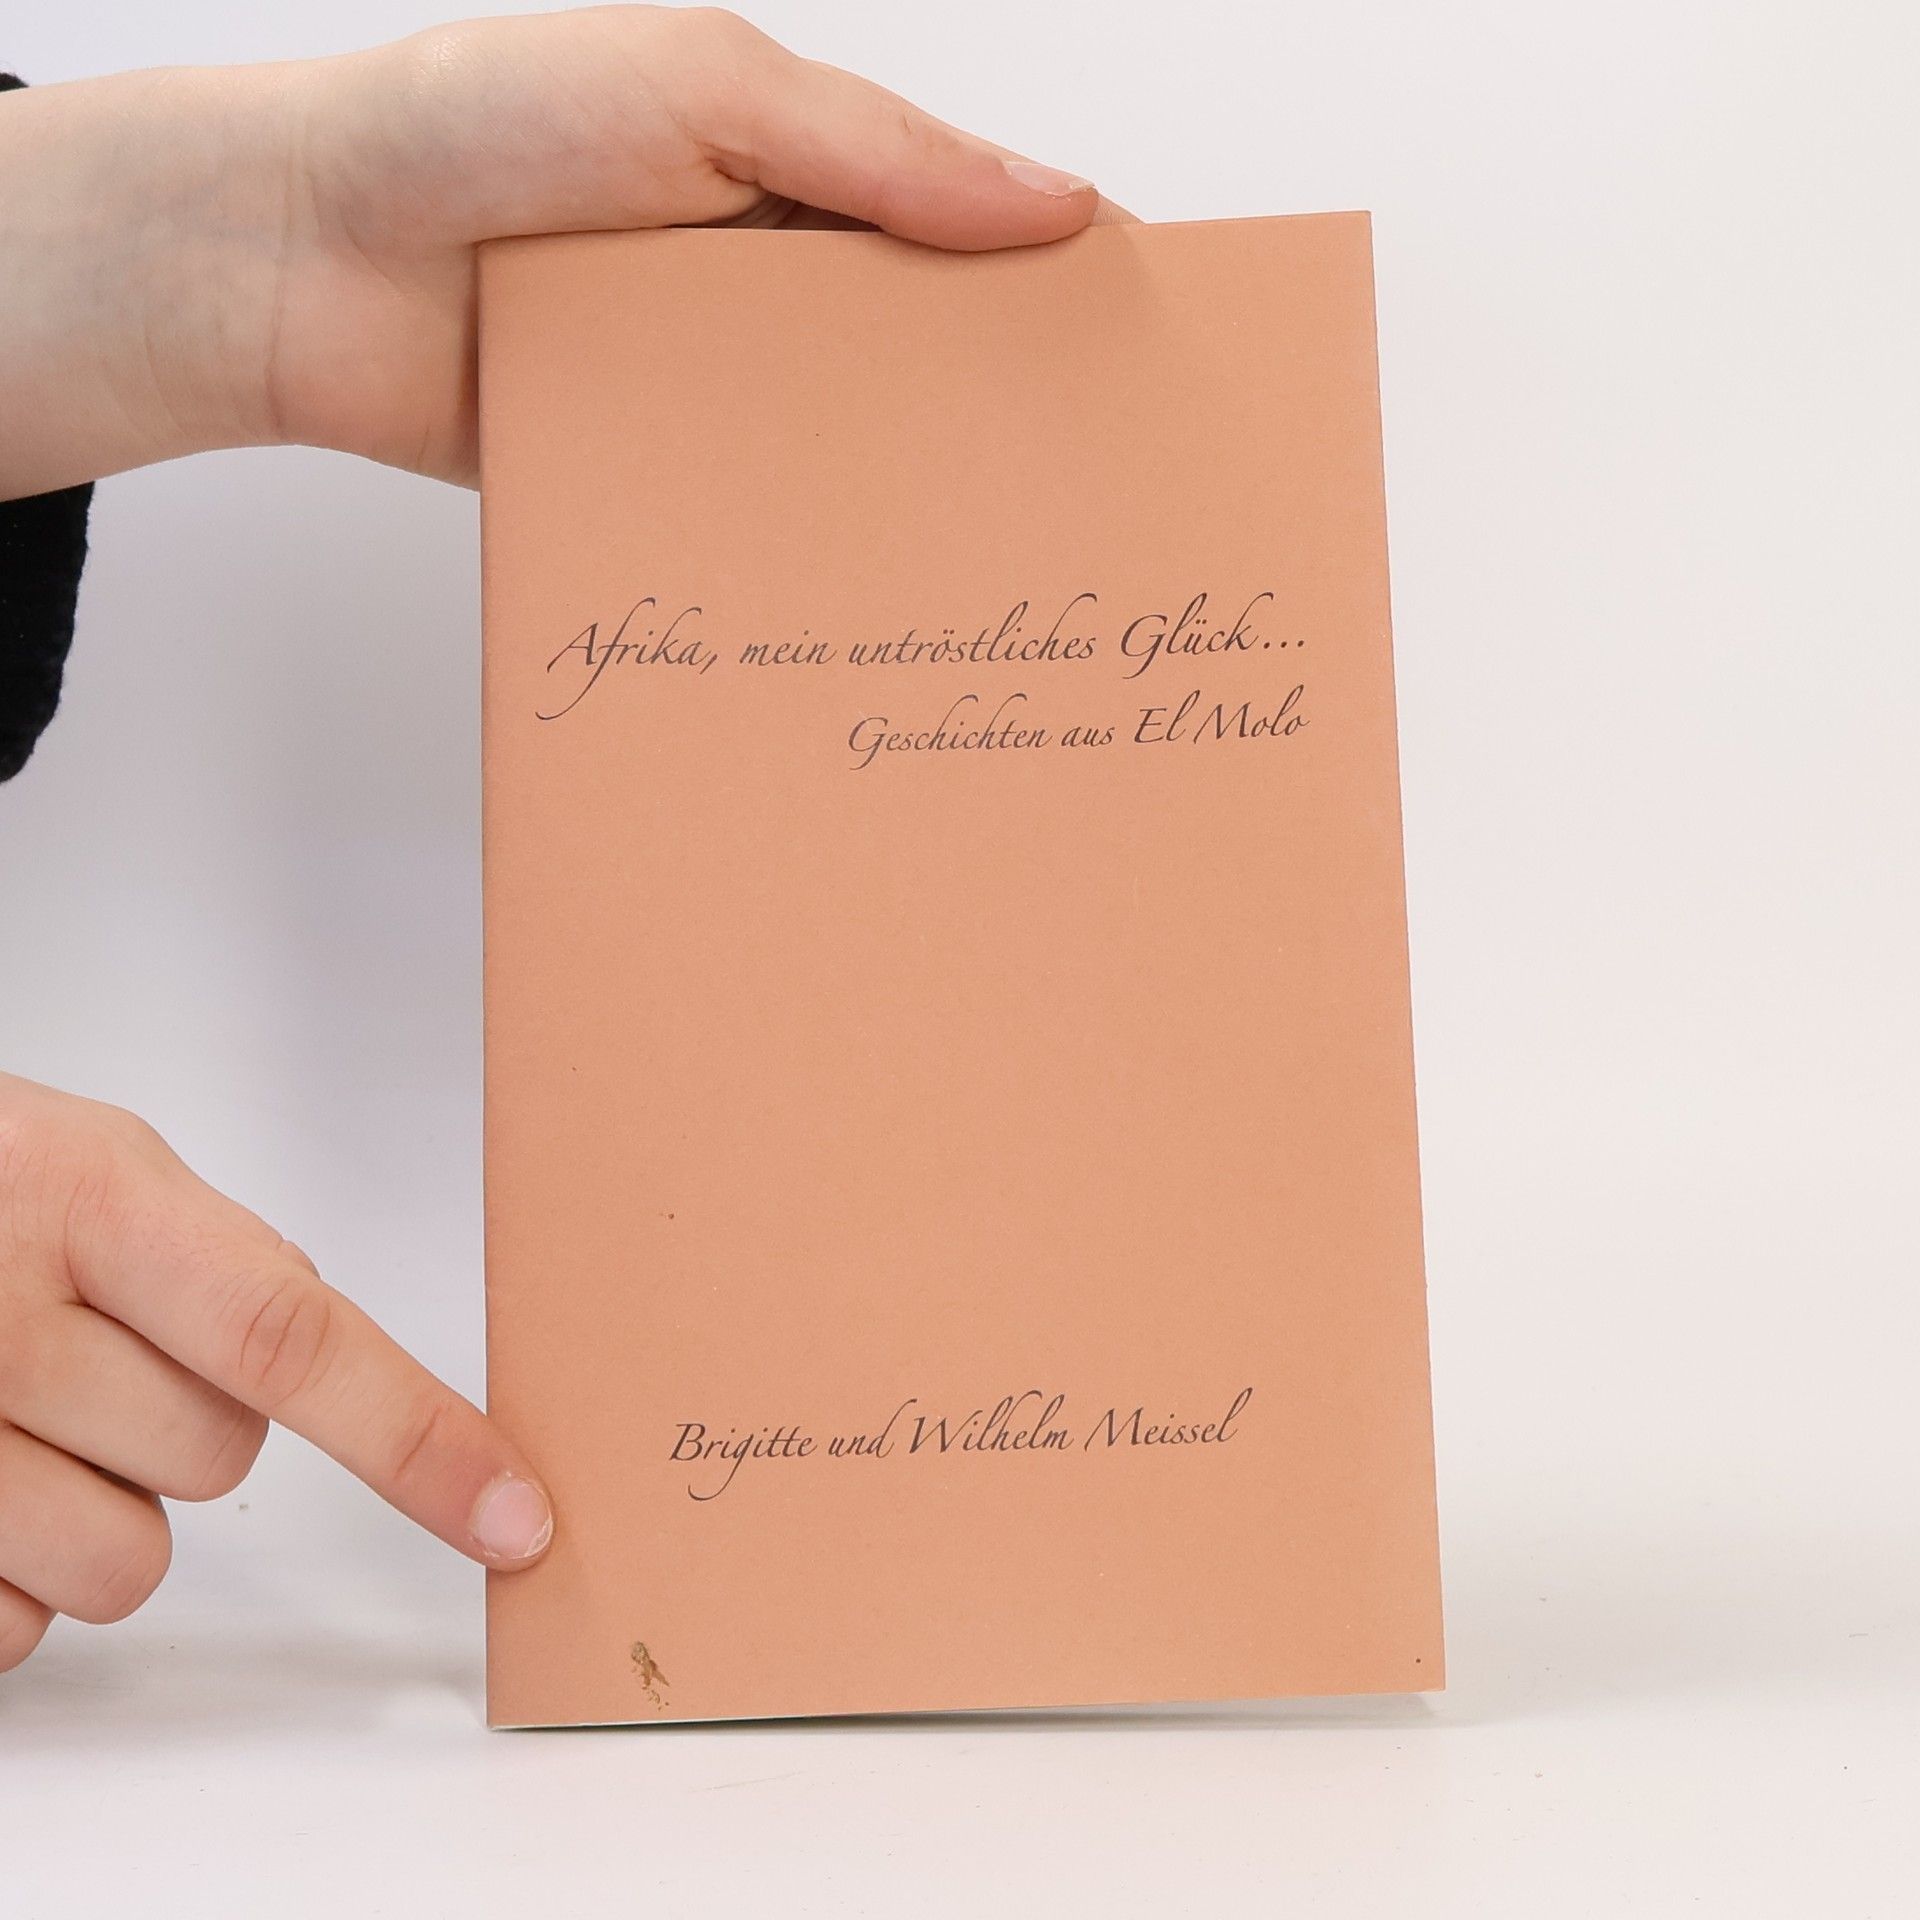 Afrika, mein untröstliches Glück...
Geschichten aus El Molo
Brigitte und Wilhelm Meissel